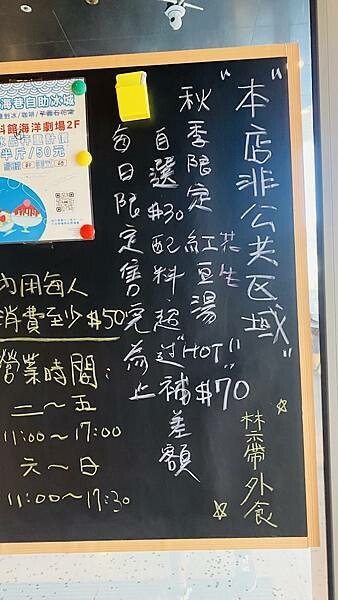 "本店非公共区域"
秋季限定 紅豆湯 花生 "HOT!! $70
自選$30配料,超過補差額
每日限定售完為止
禁帶外食
海巷自助冰城
科館海洋劇場2F
冰品秤重計價
半斤/50元
內用每人
消費至少$50
營業時間:
二～五
11:00～17:00
六～日
11:00～17:30